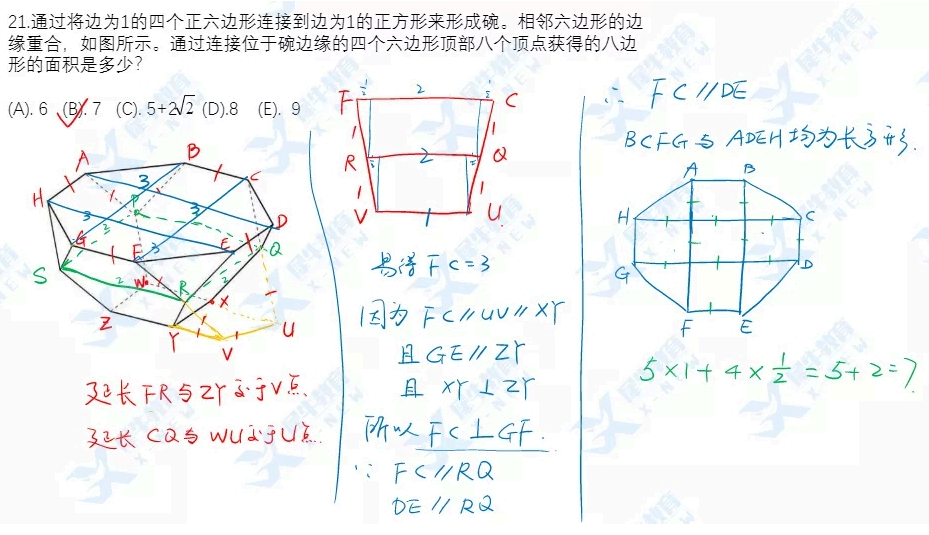 21.通过将边为1的四个正六边形连接到边为1的正方形来形成碗。相邻六边形的边
缘重合，如图所示。通过连接位于碗边缘的四个六边形顶部八个顶点获得的八边
形的面积是多少?
(A). 6 (B). 7 (C). 5+2√2 (D).8 (E). 9
A
B
C
H
3
3
D
3
3
G
2
F
E
Q
S
2
2
R
W
X
Z
Y
U
V
延长 FR与ZY交于V点.
延长 CQ与WU交于U点.
1/2
2
1/2
F
C
1
1
R
2
Q
1
1
V
1
U
易得 FC=3
因为 FC//UV//XY
且 GE//ZY
且 XY⊥ZY
所以 FC⊥GF.
∵ FC//RQ
DE//RQ
∴ FC//DE
BCFG与ADEH均为长方形.
A
B
H
C
G
D
F
E
5×1+4×1/2=5+2=7
犀牛教育
X-NEW